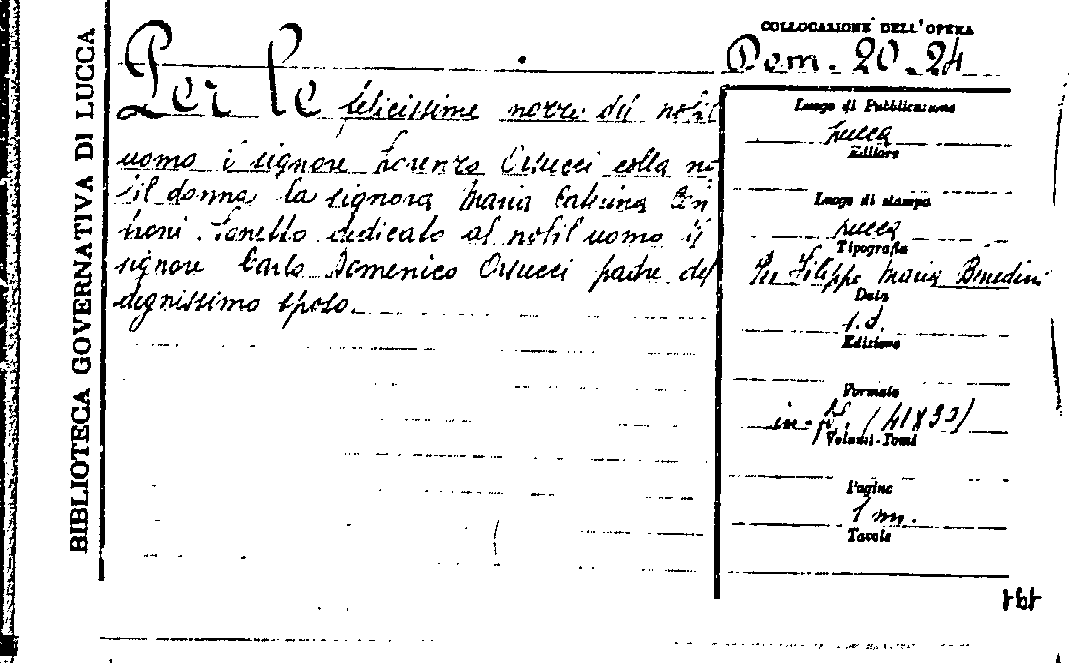 BIBLIOTECA GOVERNATIVA DI LUCCA
Per le felicissime nozze del nobil
uomo il signore Lorenzo Orsucci colla no
bil donna la signora Maria Caterina Cen
troni. Sonetto dedicato al nobil uomo il
signore Carlo Domenico Orsucci padre del
dignissimo sposo.
COLLOCAZIONE DELL'OPERA
Dom. 20.24
Luogo di Pubblicazione
Lucca
Editore
Luogo di stampa
Lucca
Tipografia
Per Filippo Maria Benedini
Data
s.d.
Edizione
Formato
in-f°. (41x30)
Volumi-Tomi
Pagine
1 m.
Tavole